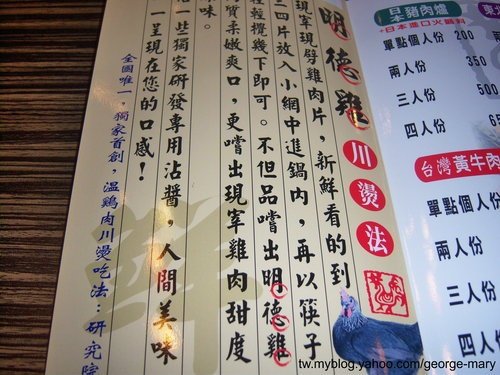 明德雞川燙法
現宰現劈雞肉片，新鮮看的到
三四片放入小網中進鍋內，再以筷子
輕輕攪幾下即可。不但品嚐出明德雞
質柔嫩爽口，更嚐出現宰雞肉甜度
味。
些獨家研發專用沾醬，人間美味
一呈現在您的口感！
全國唯一，獨家首創，溫雞肉川燙吃法：研究院
日本豬肉爐
+日本進口火鍋料
單點個人份 200
兩人份 350
三人份 500
四人份 65
台灣黃牛肉
單點個人份
兩人份
三人份
四人份
tw.myblog.yahoo.com/george-mary